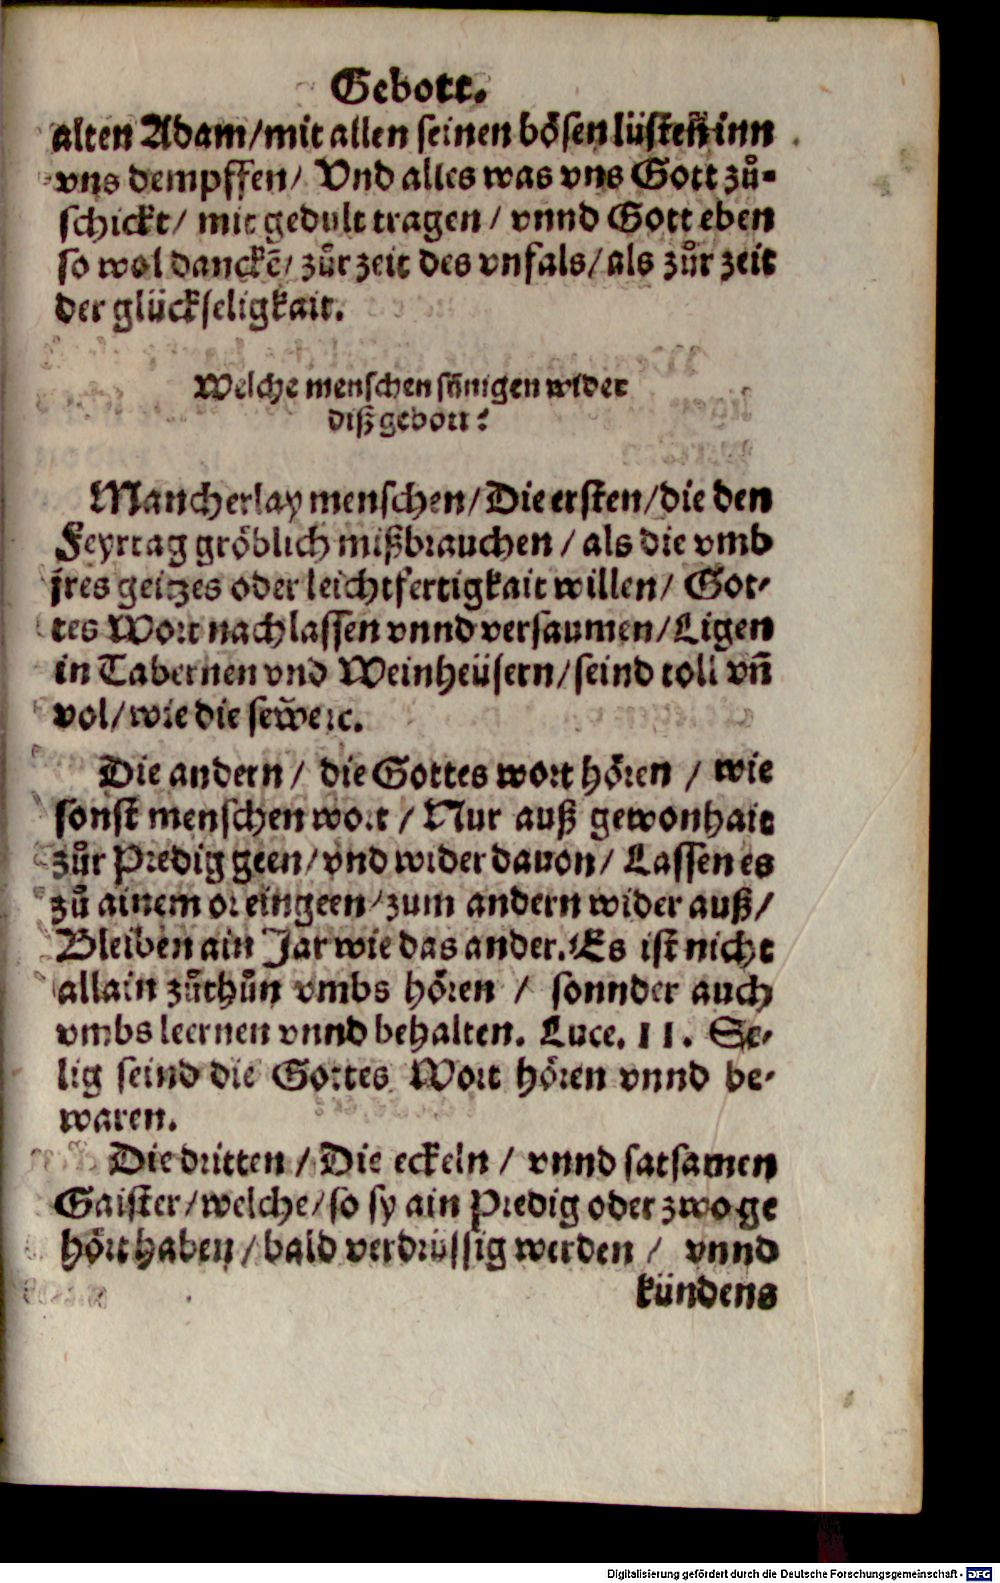 Gebott.
alten Adam/mit allen seinen bösen lüsten inn
vns dempffen/ Vnd alles was vns Gott zů-
schickt/ mit gedult tragen / vnnd Gott eben
so wol danckẽ/ zůr zeit des vnfals/als zůr zeit
der glückseligkait.
Welche menschen sünigen wider
diß gebott?
Mancherlay menschen/Die ersten/die den
Feyrtag gröblich mißbrauchen / als die vmb
jres geitzes oder leichtfertigkait willen/ Got-
tes Wort nachlassen vnnd versaumen/Ligen
in Tabernen vnd Weinheüsern/seind toll vñ
vol/wie die sew̃ etc.
Die andern / die Gottes wort hören / wie
sonst menschen wort / Nur auß gewonhait
zůr Predig geen/vnd wider dauon/ Lassen es
zů ainem or eingeen/zum andern wider auß/
Bleiben ain Jar wie das ander. Es ist nicht
allain zůthůn vmbs hören / sonnder auch
vmbs leernen vnnd behalten. Luce. 11. Se-
lig seind die Gottes Wort hören vnnd be-
waren.
Die dritten / Die eckeln / vnnd satsamen
Gaister/welche/so sy ain Predig oder zwo ge
hört haben/bald verdrüssig werden / vnnd
kündens
Digitalisierung gefördert durch die Deutsche Forschungsgemeinschaft - DFG